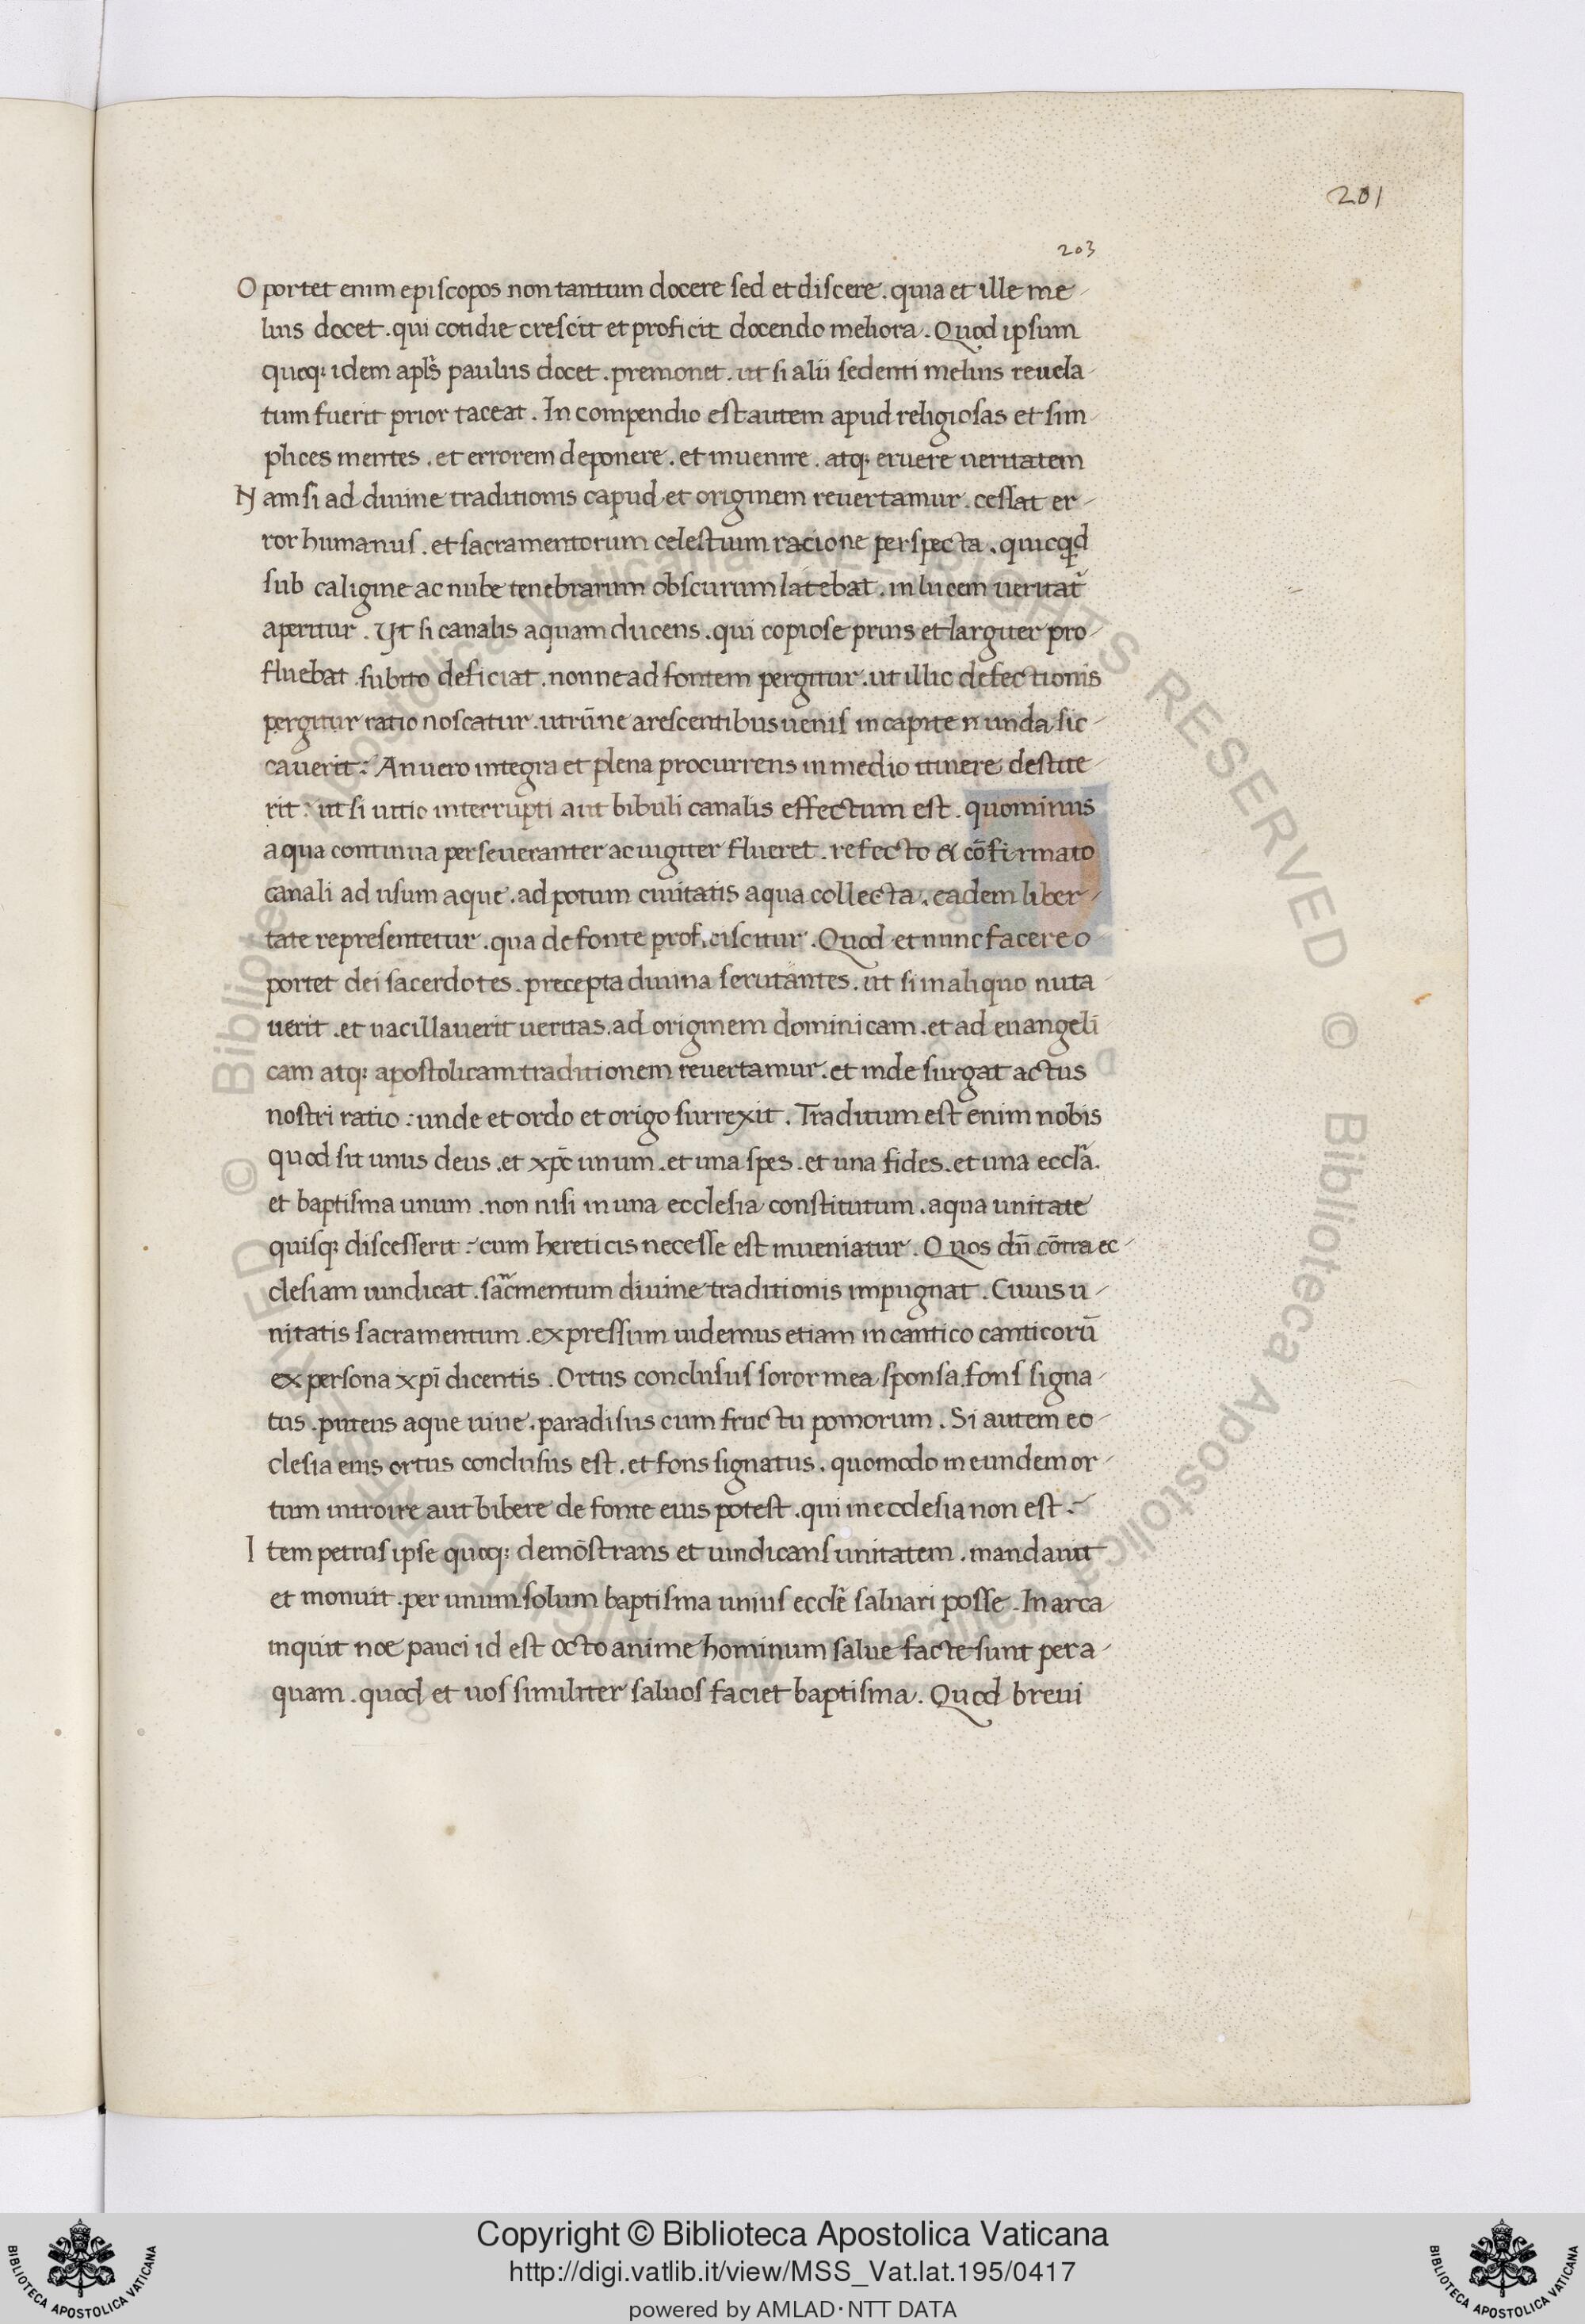 201
203
Oportet enim episcopos non tantum docere sed et discere. quia et ille me-
lius docet. qui cotidie crescit et proficit docendo meliora. Quod ipsum
quoq; idem apl̃s paulus docet. premonet. ut si alii sedenti melius reuela-
tum fuerit prior taceat. In compendio est autem apud religiosas et sim-
plices mentes. et errorem deponere. et inuenire. atq; eruere ueritatem
Nam si ad diuine traditionis capud et originem reuertamur. cessat er-
ror humanus. et sacramentorum celestium racione perspecta. quicqd
sub caligine ac nube tenebrarum obscurum latebat. in lucem ueritat̃
aperitur. Ut si canalis aquam ducens. qui copiose prius et largiter pro-
fluebat subito deficiat. nonne ad fontem pergitur. ut illic defectionis
pergitur ratio noscatur. utrũne arescentibus uenis in capite n unda sic-
cauerit: An uero integra et plena procurrens in medio itinere destite-
rit: ut si uitio interrupti aut bibuli canalis effectum est. quominus
aqua continua perseueranter ac iugiter flueret. refecto & cõfirmato
canali ad usum aque. ad potum ciuitatis aqua collecta. eadem liber-
tate representetur. qua de fonte proficiscitur. Quod et nunc facere o
portet dei sacerdotes. precepta diuina seruantes. ut si in aliquo nuta
uerit. et uacillauerit ueritas. ad originem dominicam. et ad euangeli
cam atq; apostolicam traditionem reuertamur. et inde surgat actus
nostri ratio: unde et ordo et origo surrexit. Traditum est enim nobis
quod sit unus deus. et xp̃c unum. et una spes. et una fides. et una eccl̃a.
et baptisma unum. non nisi in una ecclesia constitutum. aqua unitate
quisq; discesserit: cum hereticis necesse est inueniatur. Quos dñ cõtra ec-
clesiam uindicat. sac̃mentum diuine traditionis impugnat. Cuius u-
nitatis sacramentum. expressum uidemus etiam in cantico canticorũ
ex persona xpĩ dicentis. Ortus conclusus soror mea sponsa. fons signa-
tus. puteus aque uiue. paradisus cum fructu pomorum. Si autem ec-
clesia eius ortus conclusus est. et fons signatus. quomodo in eundem or-
tum introire aut bibere de fonte eius potest. qui in ecclesia non est.
Item petrus ipse quoq; demõstrans et uindicans unitatem. mandauit
et monuit. per unum solum baptisma unius eccl̃e saluari posse. In arca
inquit noe pauci id est octo anime hominum salue facte sunt per a-
quam. quod et uos similiter saluos faciet baptisma. Quod breui
Copyright © Biblioteca Apostolica Vaticana
http://digi.vatlib.it/view/MSS_Vat.lat.195/0417
powered by AMLAD·NTT DATA
BIBLIOTECA APOSTOLICA VATICANA
BIBLIOTECA APOSTOLICA VATICANA